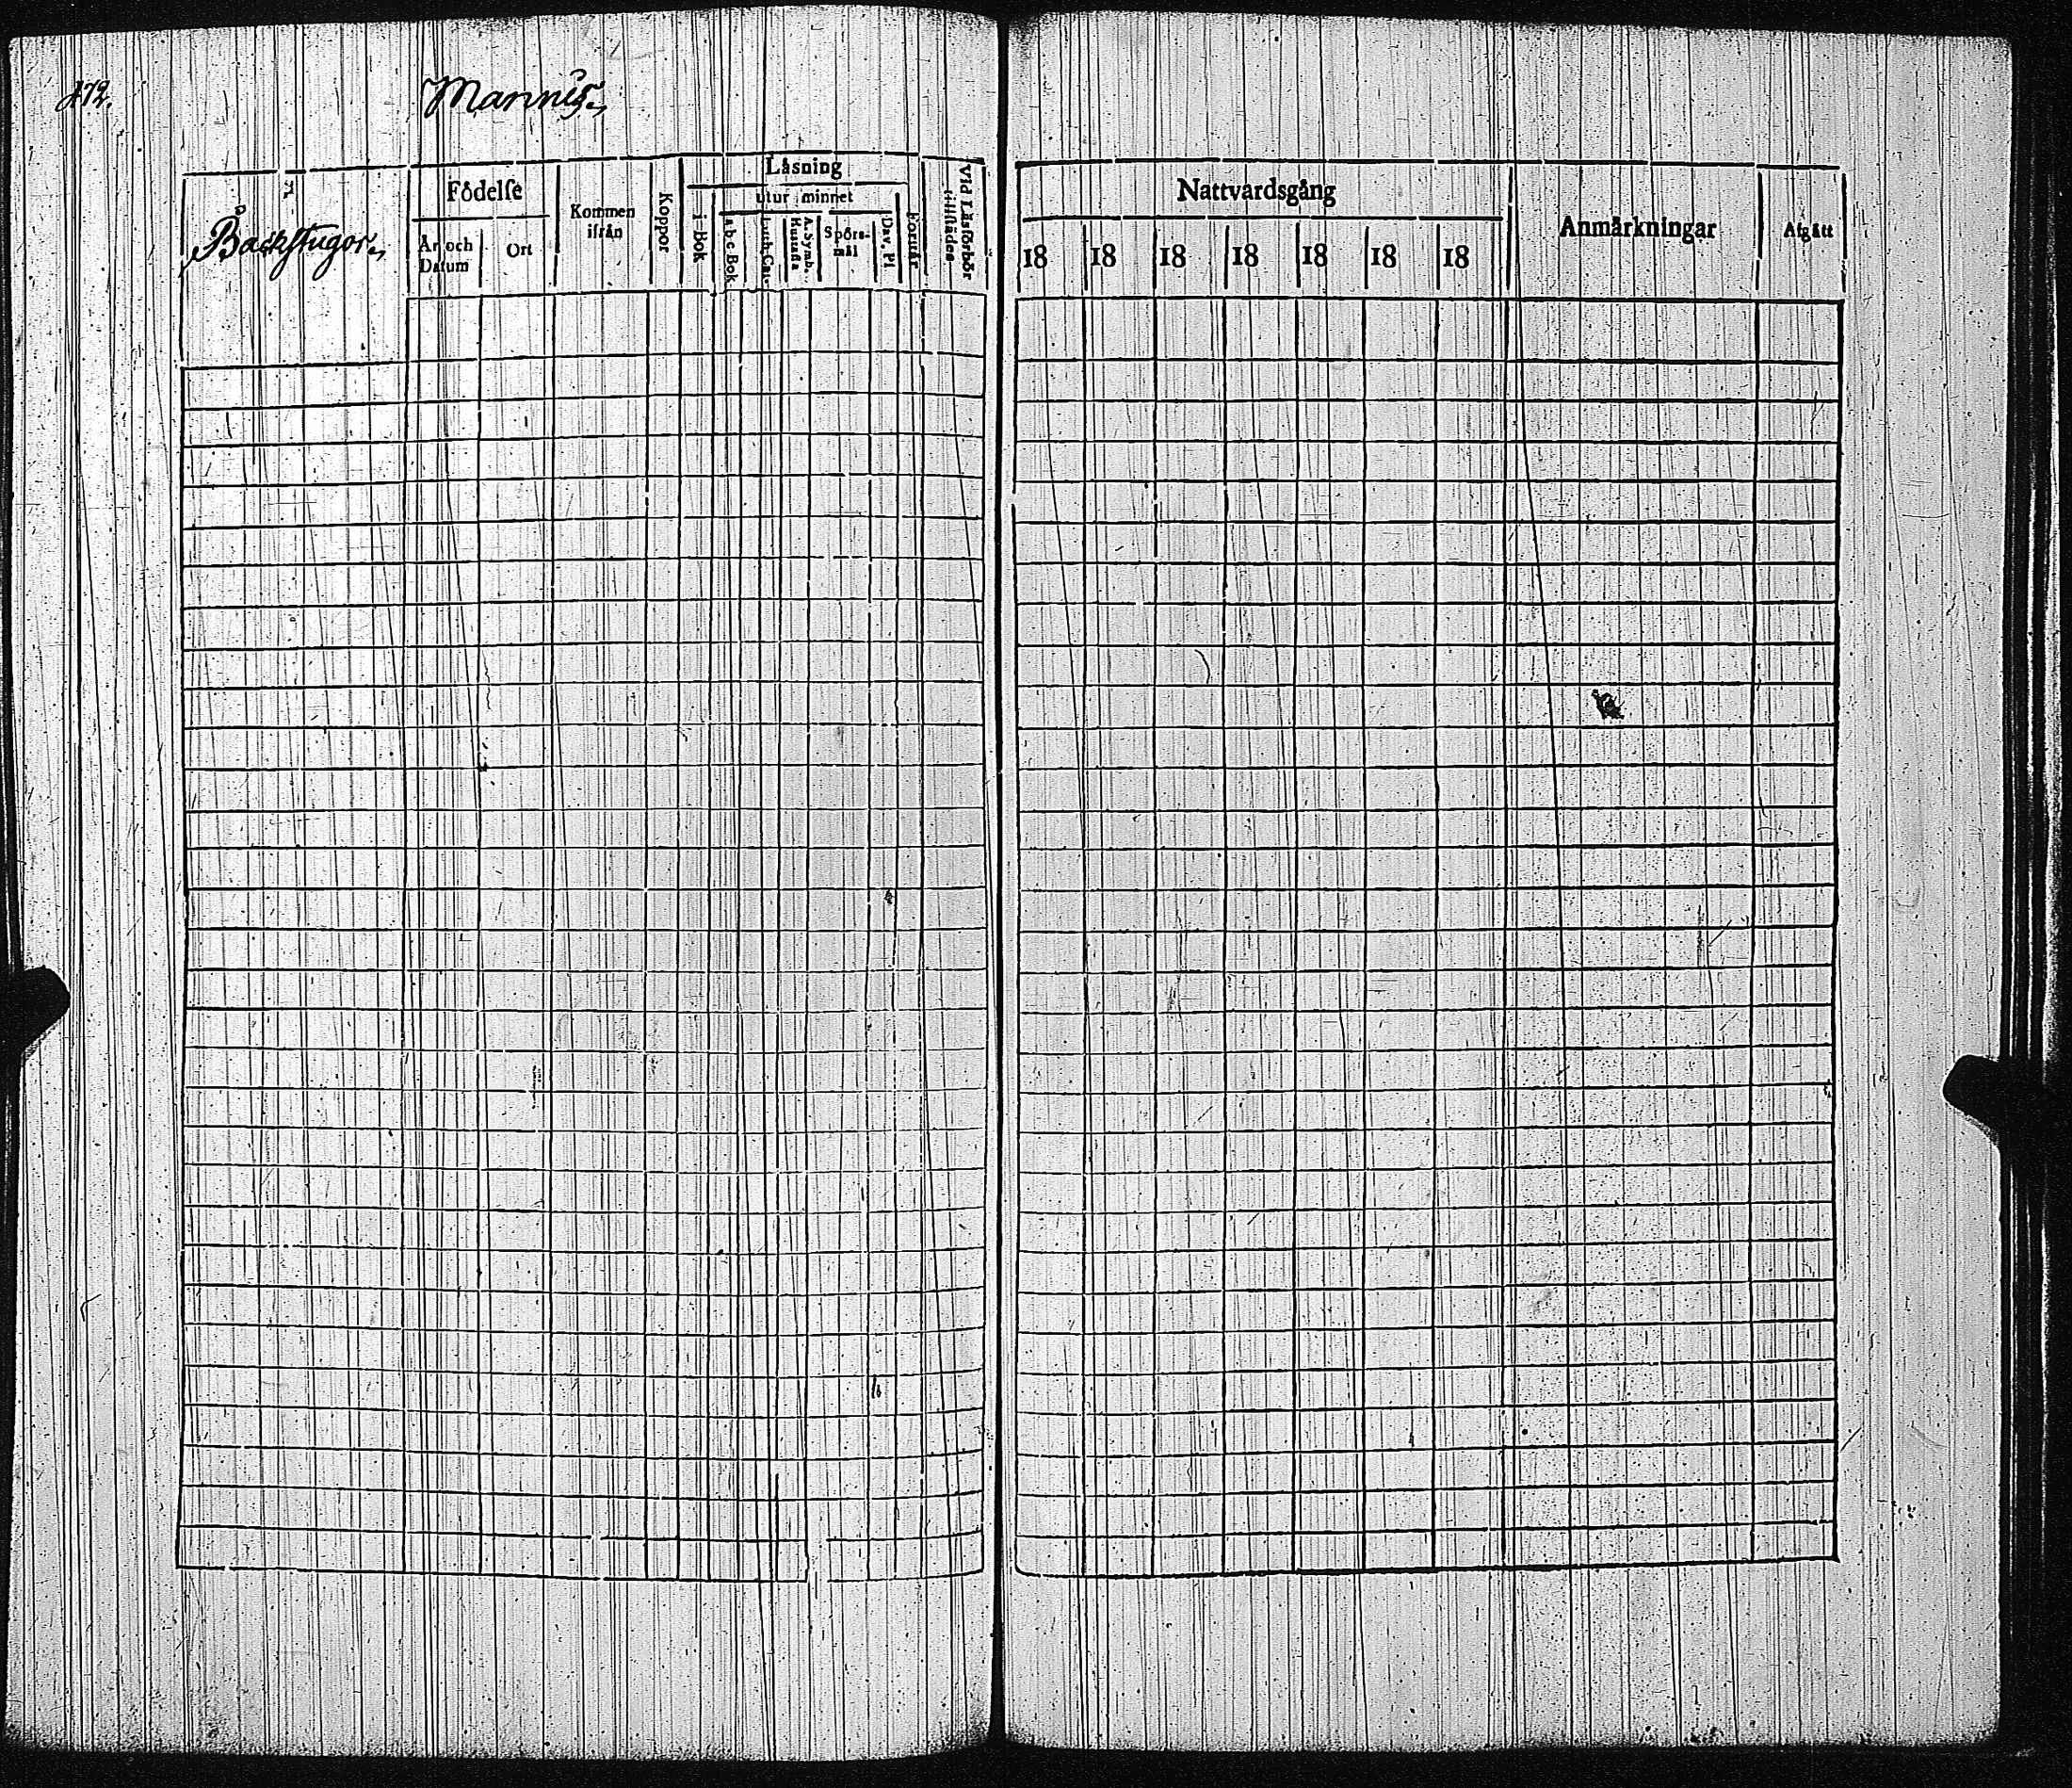 472.
Mannis.
Backstugor.
Födelſe
År och Datum
Ort
Kommen ifrån
Koppor
Läsning
i Bok
utur minnet
a b c Bok
Luth. Cat.
A. Symb. Hustafla
Spörs-mål
Dav. Pſ
Förſtår
Vid Läsförhör tillſtädes
Nattvardsgång
18 18 18 18 18 18 18
Anmärkningar
Afgått